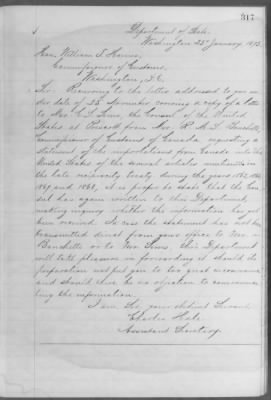 317
Department of State.
Washington 23d January 1873.
Hon. William T. Haines,
Commissioner of Customs,
Washington, D.C.
Sir: Recurring to the letter addressed to you un
der date of 25 November covering a copy of a letter
to Mr. C. S. Sims, the Consul of the United
States at Prescott from Mr. R. S. M. Bouchette,
Commissioner of Customs of Canada requesting a
statement of the importations from Canada into the
United States of the several articles enumerated in
the late reciprocity treaty during the years
1869 and it is proper to state that the Con
sul has again written to this Department,
making inquiry whether the information has yet
been received. In case the statement has not been
transmitted direct from your office to Mr.
Bouchette or to Mr. Sims, this Department
will take pleasure in forwarding it should its
preparation not put you to too great inconvenience
and should there be no objection to communica
ting the information.
I am Sir, your obedient Servant
Charles Hale
Assistant Secretary.